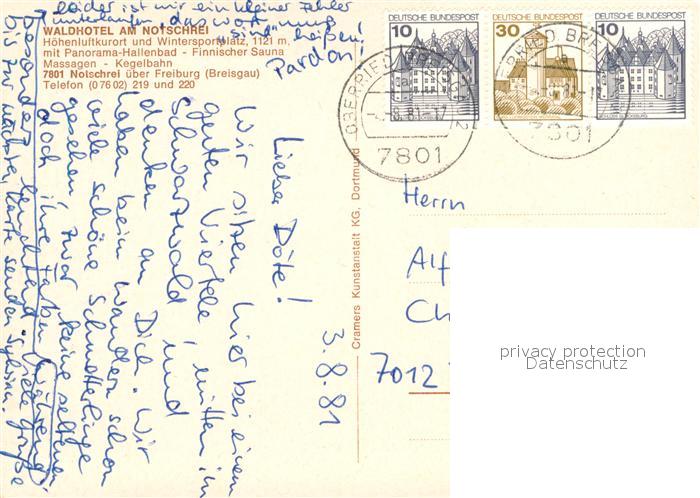 leider ist mir ein kleiner Fehler
unterlaufen, das wort
"sind" heißen!
Pardon!
WALDHOTEL AM NOTSCHREI
Höhenluftkurort und Wintersportplatz, 1121 m,
mit Panorama-Hallenbad - Finnischer Sauna
Massagen - Kegelbahn
7801 Notschrei über Freiburg (Breisgau)
Telefon (0 76 02) 219 und 220
3.8.81
Lieber Döte!
Wir sitzen hier bei einem
guten Viertele mitten im
Schwarzwald und
denken an Dich. Wir
haben beim wandern schon
viele schöne Schmetterlinge
gesehen zwar keine seltenen
doch ihre Farben
besonders leuchtend. Viele Grüße
bis zur nächsten Karte senden Sylvia.
Cramers Kunstanstalt KG, Dortmund
DEUTSCHE BUNDESPOST
10
DEUTSCHE BUNDESPOST
30
DEUTSCHE BUNDESPOST
10
SCHLOSS GLÜCKSBURG
OBERRIED, BREISGAU 2
-3.8.81-17
7801
OBERRIED, BRE
7801
Herrn
Alf
Ch
7012
privacy protection
Datenschutz